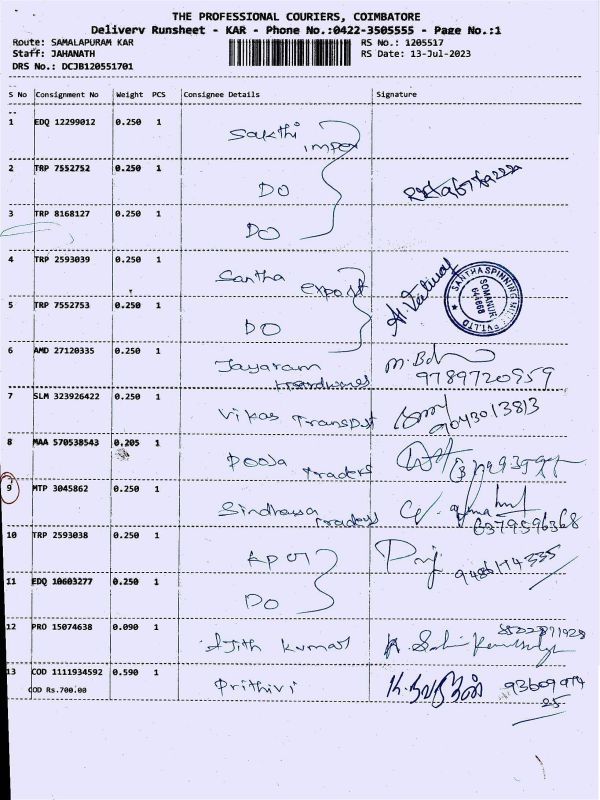 THE PROFESSIONAL COURIERS, COIMBATORE
Delivery Runsheet - KAR - Phone No.:0422-3505555 - Page No.:1
Route: SAMALAPURAM KAR RS No.: 1205517
Staff: JAHANATH RS Date: 13-Jul-2023
DRS No.: DCJB120551701
S No Consignment No Weight PCS Consignee Details Signature
1 EDQ 12299012 0.250 1 Sakthi impex
2 TRP 7552752 0.250 1 DO
3 TRP 8168127 0.250 1 DO
4 TRP 2593039 0.250 1 Santha export
SANTHA SPINNING MILLS PVT.LTD
SOMANUR
641668
5 TRP 7552753 0.250 1 DO
6 AMD 27120335 0.250 1 Jayaram Hardwares 9789720959
7 SLM 323926422 0.250 1 Vikas Transpot 9043013813
8 MAA 570538543 0.205 1 Pooja Traders
9 MTP 3045862 0.250 1 Sindhuja Traders 6379596368
10 TRP 2593038 0.250 1 9486174335
11 EDQ 10603277 0.250 1 DO
12 PRO 15074638 0.090 1 Ajith Kumar
13 COD 1111934592 0.590 1 Prithivi 93609974
COD Rs.700.00 25